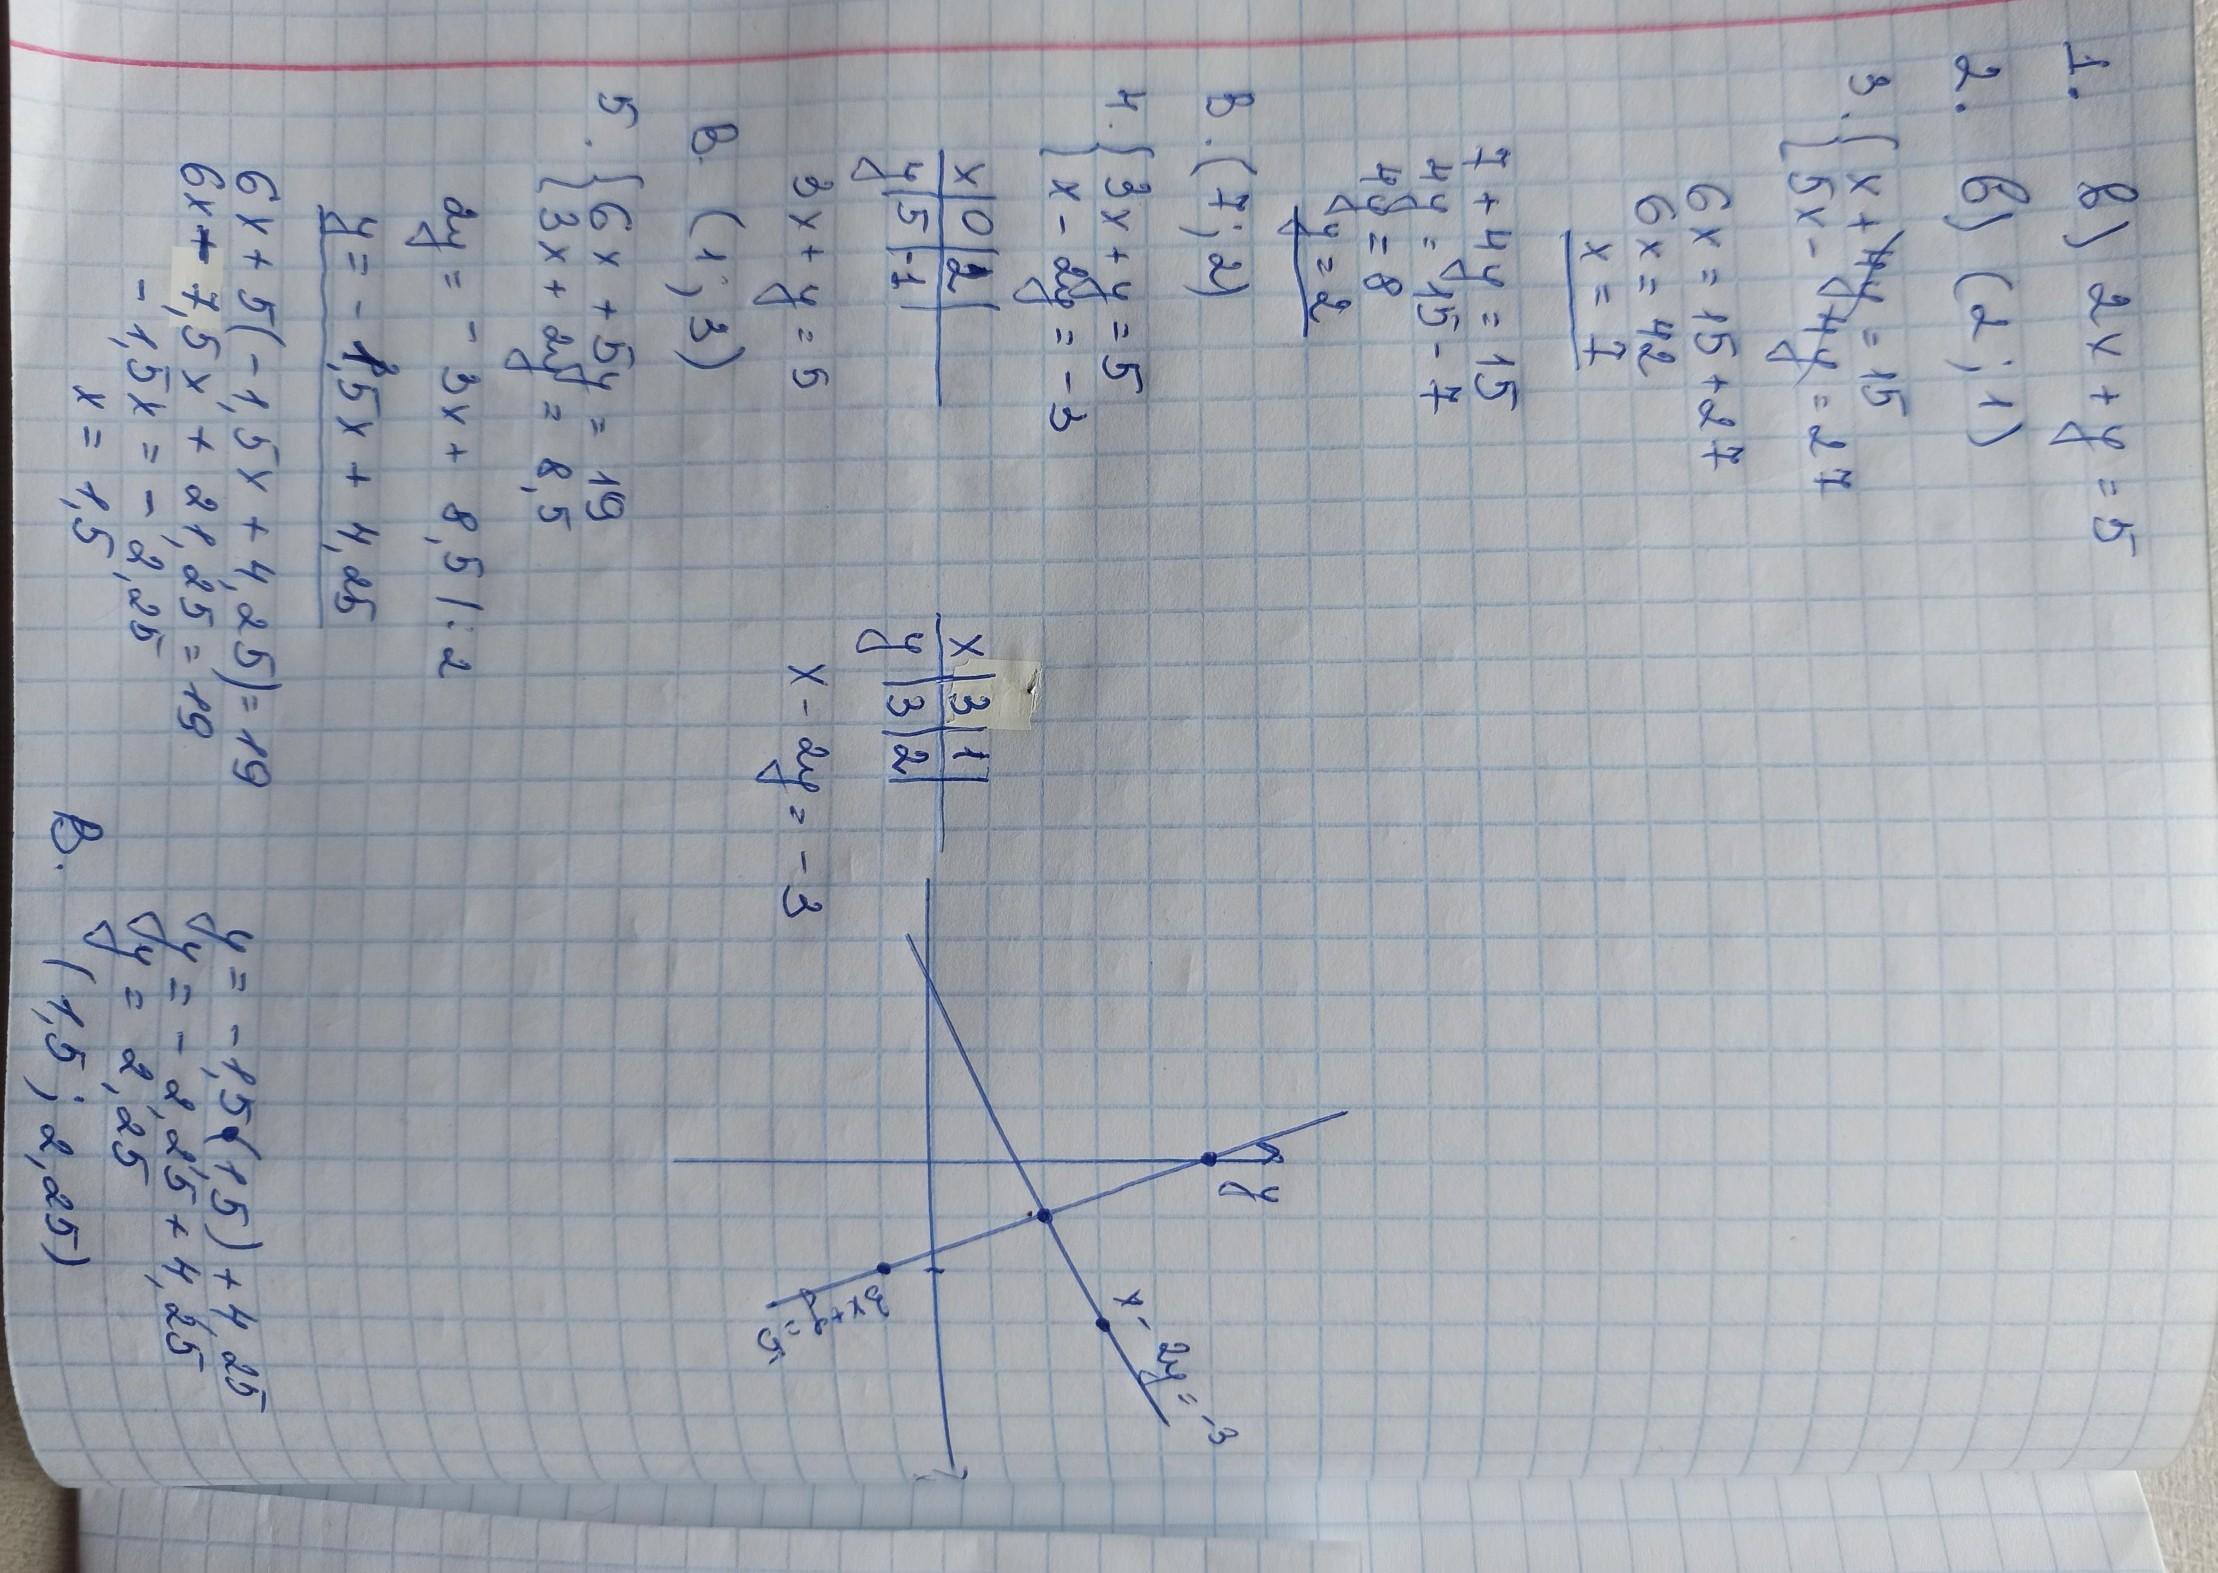 1. в) 2x + y = 5
2. б) (2 ; 1)
3. { x + 4y = 15
{ 5x - 4y = 27
6x = 15 + 27
6x = 42
x = 7
7 + 4y = 15
4y = 15 - 7
4y = 8
y = 2
В. (7 ; 2)
4. { 3x + y = 5
{ x - 2y = -3
x | 0 | 2 |
y | 5 | -1 |
x | 3 | 1 |
y | 3 | 2 |
3x + y = 5
x - 2y = -3
y
x - 2y = -3
В. (1 ; 3)
5. { 6x + 5y = 19
{ 3x + 2y = 8,5
2y = -3x + 8,5 | : 2
y = -1,5x + 4,25
6x + 5(-1,5x + 4,25) = 19
6x - 7,5x + 21,25 = 19
-1,5x = -2,25
x = 1,5
y = -1,5·(1,5) + 4,25
y = -2,25 + 4,25
y = 2,25
В. (1,5 ; 2,25)